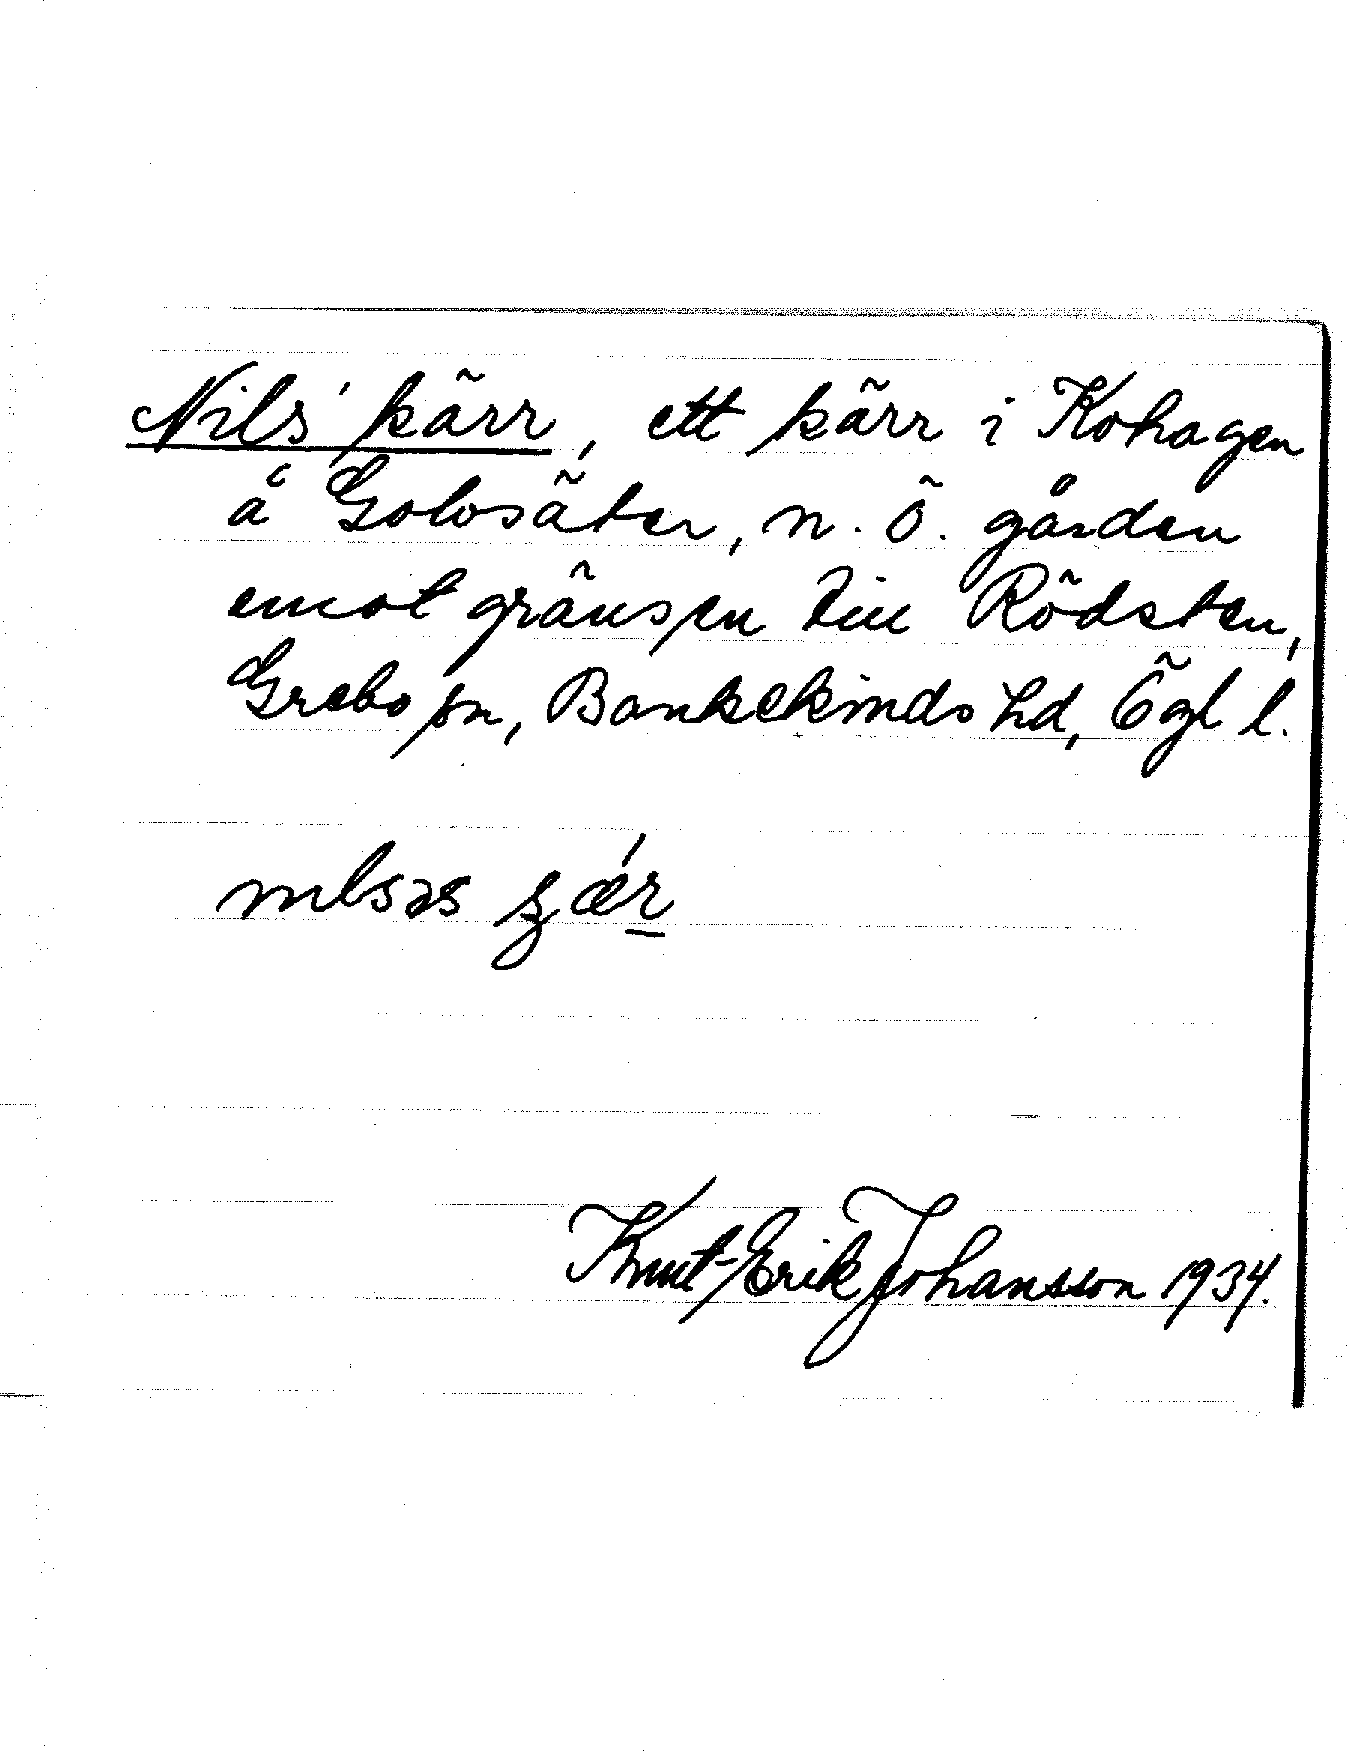 Nils' kärr, ett kärr i Kohagen
å Golvsäter, n. ö. gården
emot gränsen till Rödsten,
Grebo sn, Bankekinds hd, Ögl l.
Knut-Erik Johansson 1934.